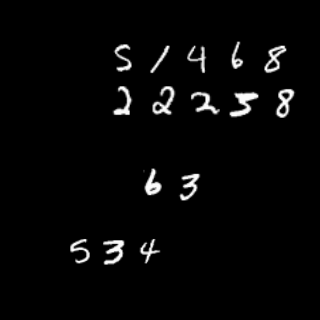 51468
22258
63
534